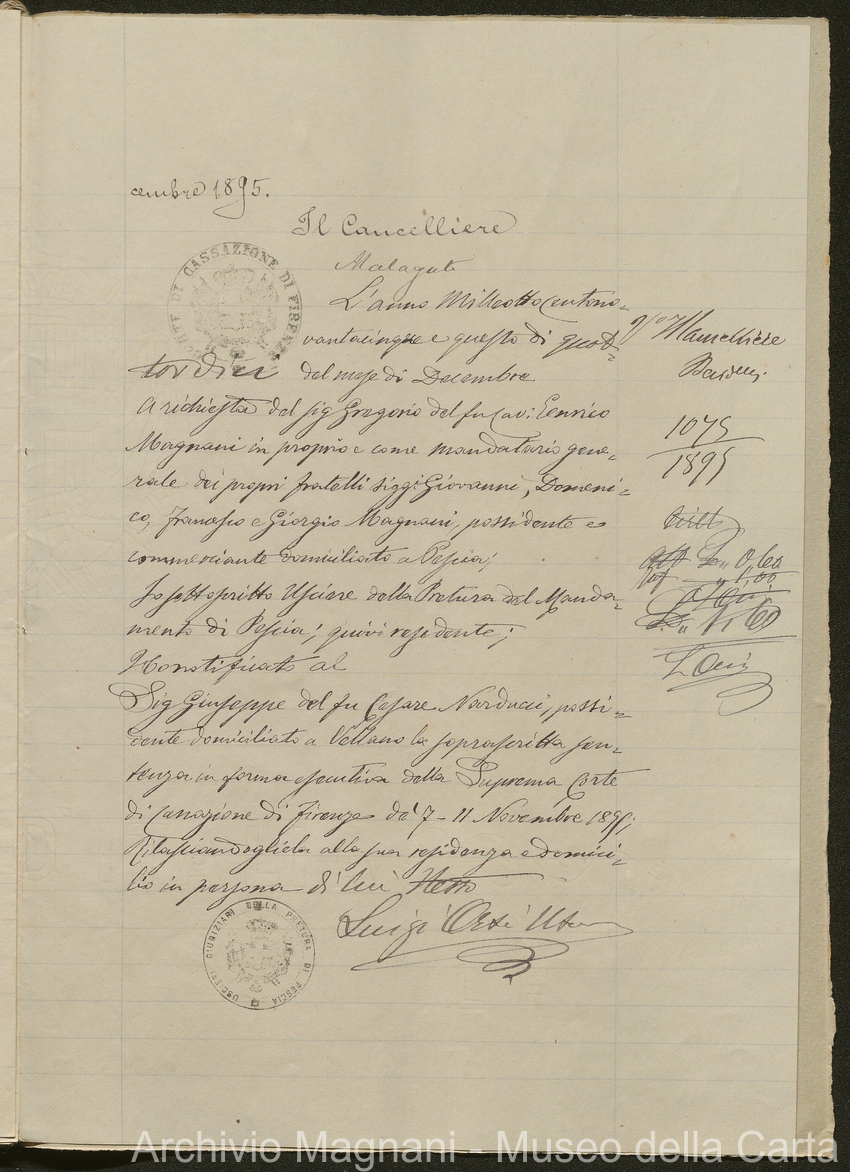 cembre 1895.
Il Cancelliere
Malagoti
CORTE DI CASSAZIONE DI FIRENZE
L'anno Milleottocentono-
vantacinque e questo di quat-
tordici del mese di Decembre
A richiesta del sig Gregorio del fu Cav: Enrico
Magnani in proprio e come mandatario gene-
rale dei propri fratelli Siggi Giovanni, Domeni-
co, Francesco e Giorgio Magnani, possidente e
commerciante domiciliato a Pescia;
Io sottoscritto Usciere della Pretura del Manda-
mento di Pescia; quivi residente;
Ho notificato al
Sig Giuseppe del fu Cesare Narducci, possi-
dente domiciliato a Vellano la soprascritta sen-
tenza in forma esecutiva della Suprema Corte
di Cassazione di Firenze de' 7-11 Novembre 1895;
Rilasciandogliela alla sua residenza e domici-
lio in persona di lui
Luigi
USCIERI GIUDIZIARI DELLA PRETURA DI PESCIA
Il Cancelliere
1075
1895
0,60
1,00
1,60
Archivio Magnani - Museo della Carta